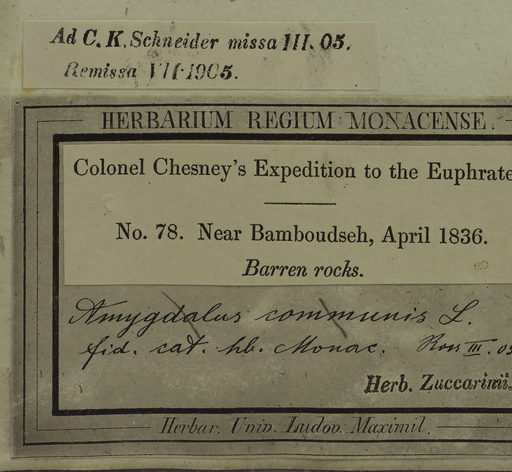 Ad C. K. Schneider missa III. 05.
Remissa VII 1905.
HERBARIUM REGIUM MONACENSE.
Colonel Chesney's Expedition to the Euphrate
No. 78. Near Bamboudseh, April 1836.
Barren rocks.
Amygdalus communis L.
fid. cat. hb. Monac. Ross III. 05
Herb. Zuccarinii.
Herbar. Univ. Ludov. Maximil.